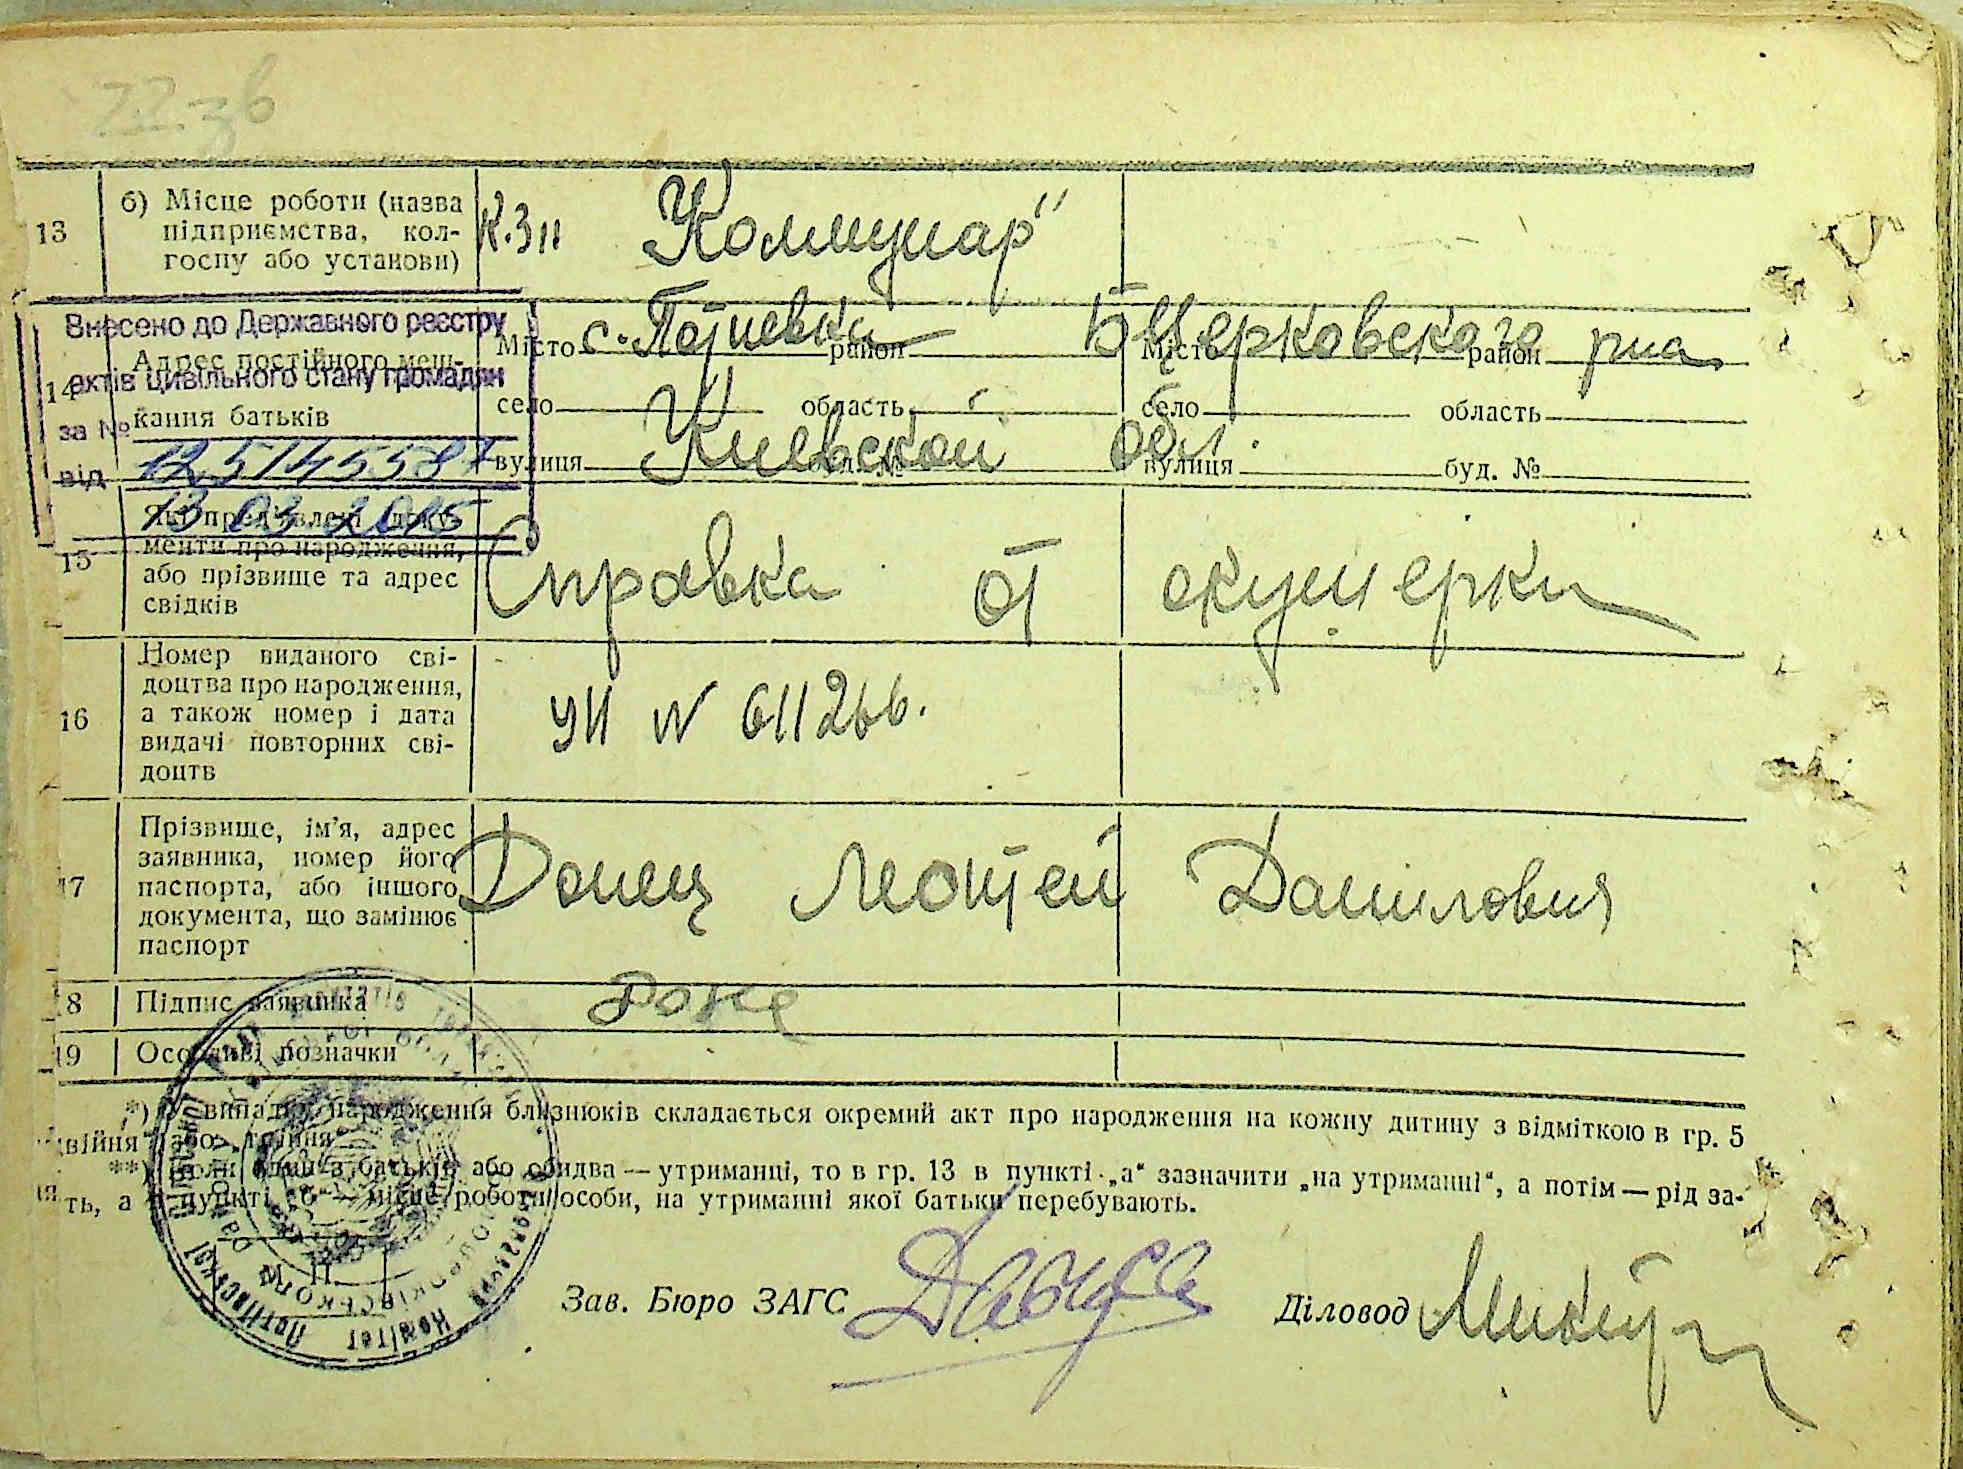 13 б) Місце роботи (назва
підприємства, кол-
госпу або установи)
К.З „ Коммунар"
Внесено до Державного реєстру
актів цивільного стану громадян
за №
від
125145587
13 03 2015
14 Адрес постійного меш-
кання батьків
Місто район Місто район
с. Потиевка БЦерковского рна
село область село область
Киевской обл.
вулиця буд. № вулиця буд. №
15 Які пред'явлені доку-
менти про народження,
або прізвище та адрес
свідків
Справка от акушерки
16 Номер виданого сві-
доцтва про народження,
а також номер і дата
видачі повторних сві-
доцтв
УИ N 611266.
17 Прізвище, ім'я, адрес
заявника, номер його
паспорта, або іншого
документа, що замінює
паспорт
Донец Мотей Данилович
18 Підпис заявника
Донец
19 Особливі позначки
*) У випадку народження близнюків складається окремий акт про народження на кожну дитину з відміткою в гр. 5
„двійня" або „трійня"
**) Коли один з батьків або обидва — утриманці, то в гр. 13 в пункті „а" зазначити „на утриманні", а потім — рід за-
ть, а в пункті „б" — місце роботи особи, на утриманні якої батьки перебувають.
М. П.
Зав. Бюро ЗАГС
Діловод